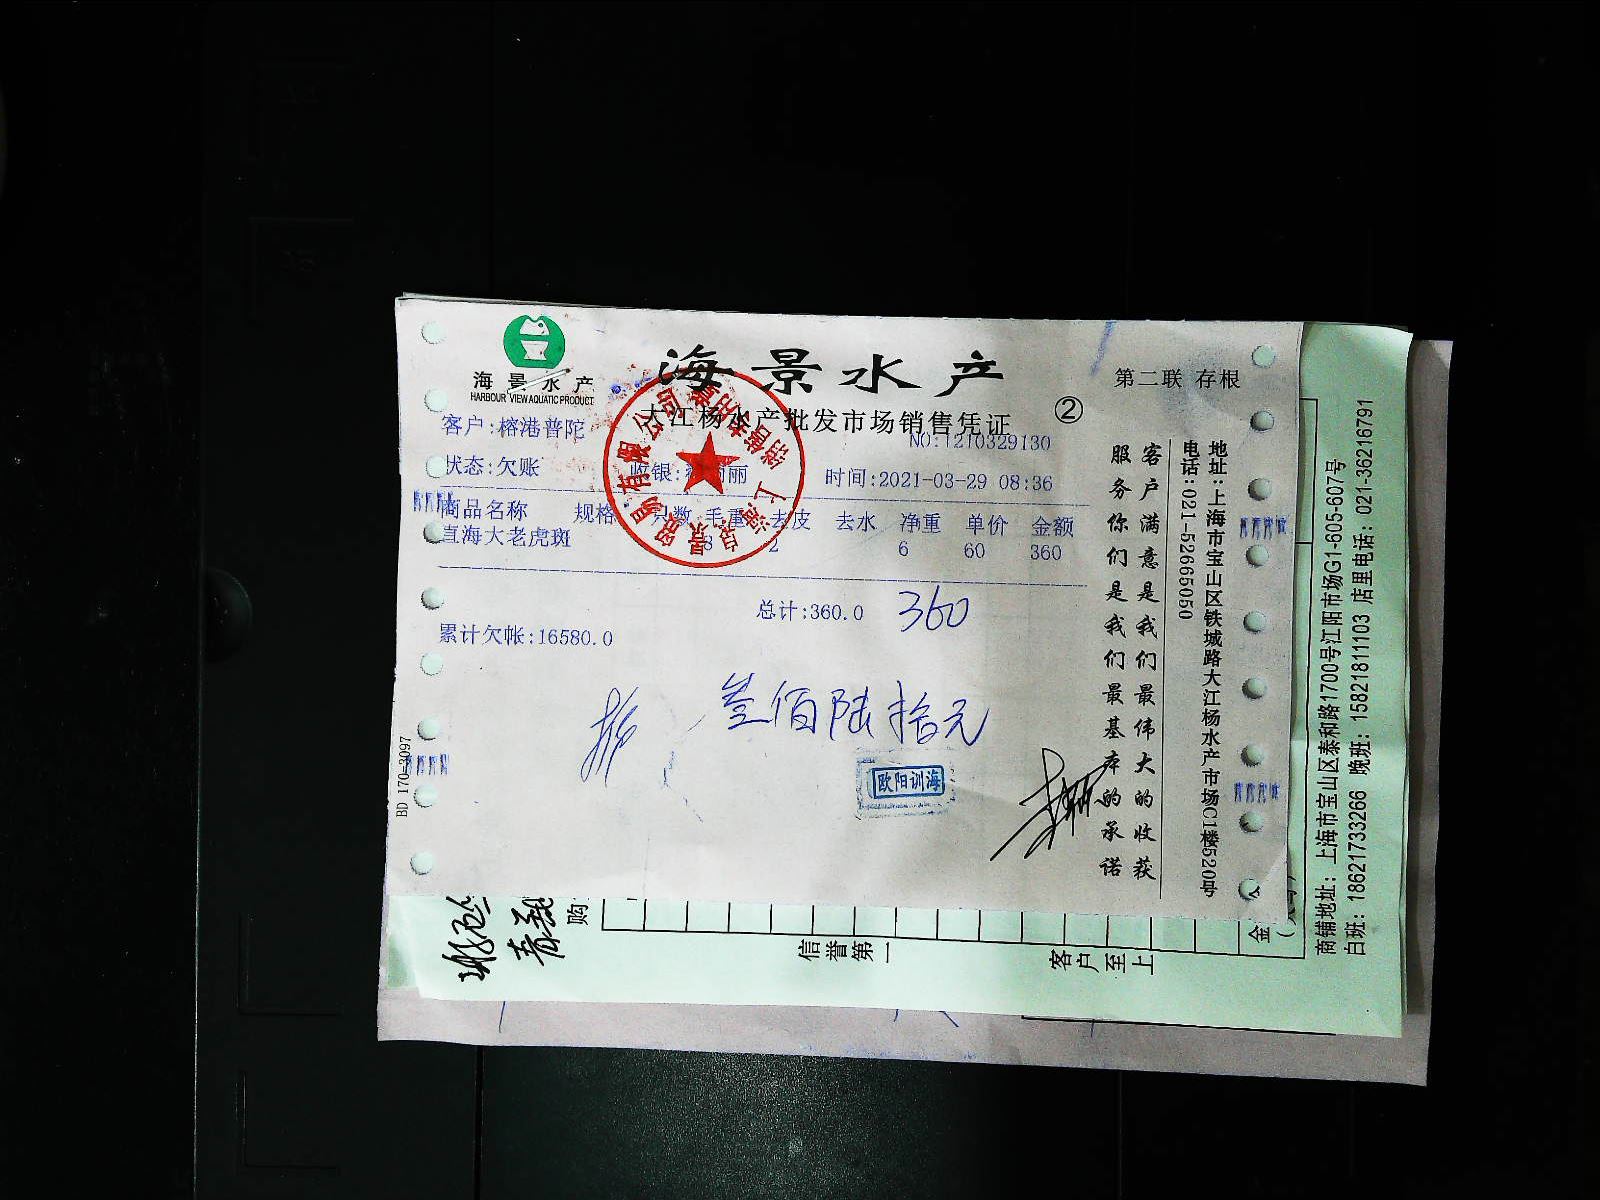 海景水产
HARBOUR VIEW AQUATIC PRODUCT
海景水产
大江杨水产批发市场销售凭证
②
第二联 存根
客户:榕港普陀
NO:1210329130
状态:欠账 收银: 丽 时间:2021-03-29 08:36
商品名称 规格 只数 毛重 去皮 去水 净重 单价 金额
直海大老虎斑 8 2 6 60 360
总计:360.0 360
累计欠帐:16580.0
叁佰陆拾元
欧阳训海
BD 170-3097
客户满意是我们最伟大的收获
服务你们是我们最基本的承诺
地址:上海市宝山区铁城路大江杨水产市场C1楼520号
电话:021-52665050
购
信誉第一
客户至上
金
商铺地址: 上海市宝山区泰和路1700号江阳市场G1-605-607号
白班: 18621733266 晚班: 15821811103 店里电话: 021-36216791